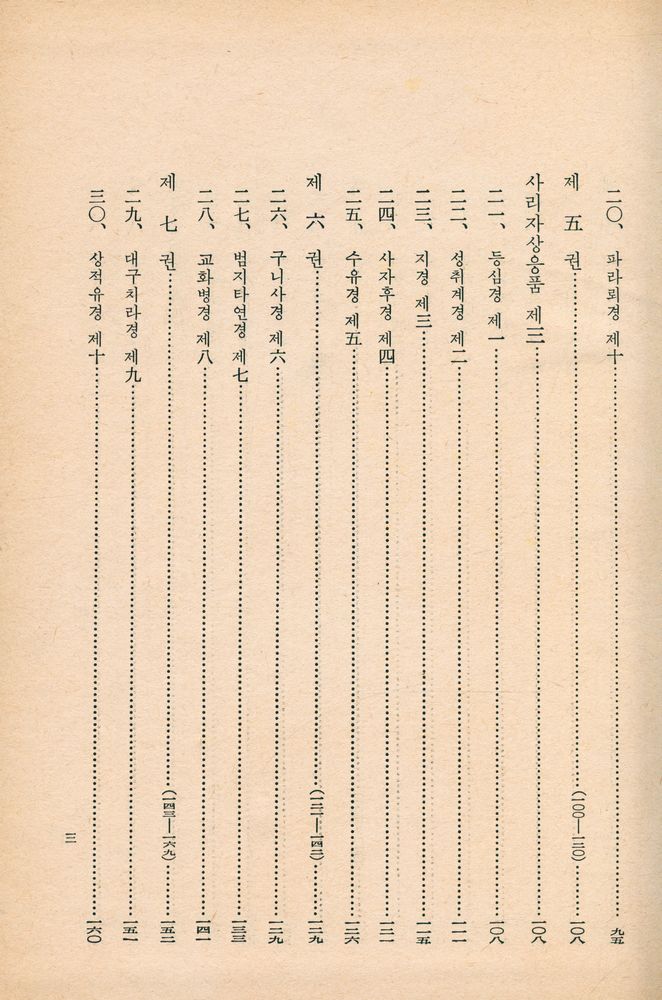 二〇、 파라뢰경 제十……九五
제 五 권……(一〇〇—一二〇)……一〇八
사리자상응품 제三……一〇八
二一、 등심경 제一……一〇八
二二、 성취계경 제二……一一一
二三、 지경 제三……一一五
二四、 사자후경 제四……一二一
二五、 수유경 제五……一二六
제 六 권……(一二一—一四二)……一二九
二六、 구니사경 제六……一二九
二七、 범지타연경 제七……一三三
二八、 교화병경 제八……一四一
제 七 권……(一四三—一六九)……一五二
二九、 대구치라경 제九……一五一
三〇、 상적유경 제十……一六〇
三